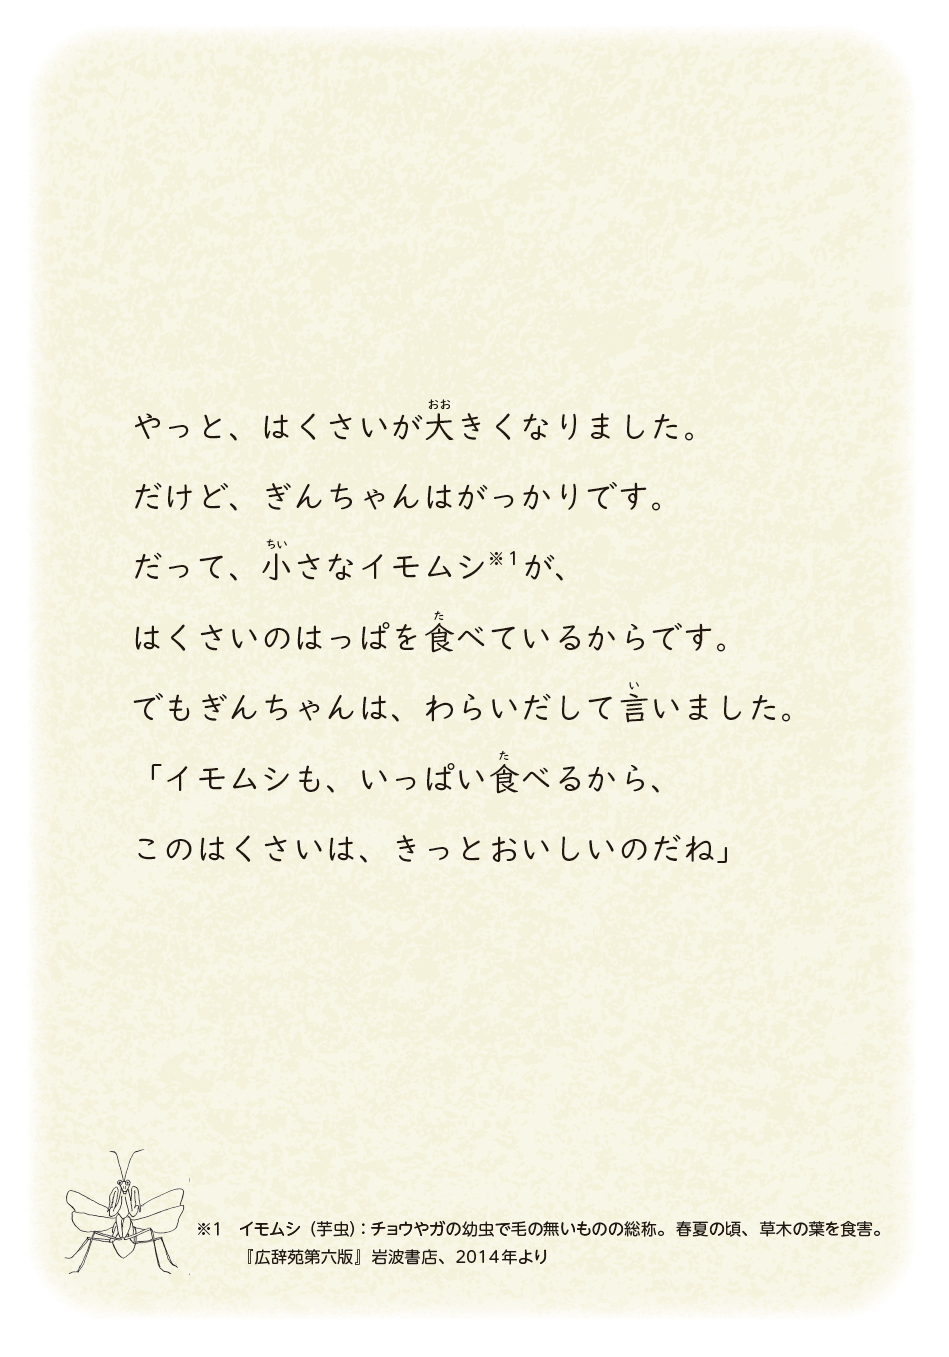 やっと、はくさいが大きくなりました。
だけど、ぎんちゃんはがっかりです。
だって、小さなイモムシ※1が、
はくさいのはっぱを食べているからです。
でもぎんちゃんは、わらいだして言いました。
「イモムシも、いっぱい食べるから、
このはくさいは、きっとおいしいのだね」
※1 イモムシ（芋虫）：チョウやガの幼虫で毛の無いものの総称。春夏の頃、草木の葉を食害。
『広辞苑第六版』岩波書店、2014年より